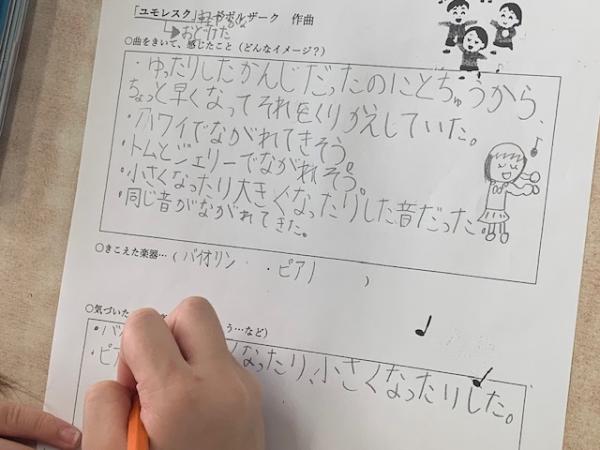 「ユモレスク」 ドボルザーク 作曲
おどけた
○曲をきいて、感じたこと（どんなイメージ？）
・ゆったりしたかんじだったのにとちゅうから、
ちょっと早くなってそれをくりかえしていた。
・ハワイでながれてきそう。
・トムとジェリーでながれそう。
・小さくなったり大きくなったりした音だった。
・同じ音がながれてきた。
○きこえた楽器…（バイオリン ・ピアノ ）
○気づいた う…など）
・バ
・ピア なったり、小さくなったりした。